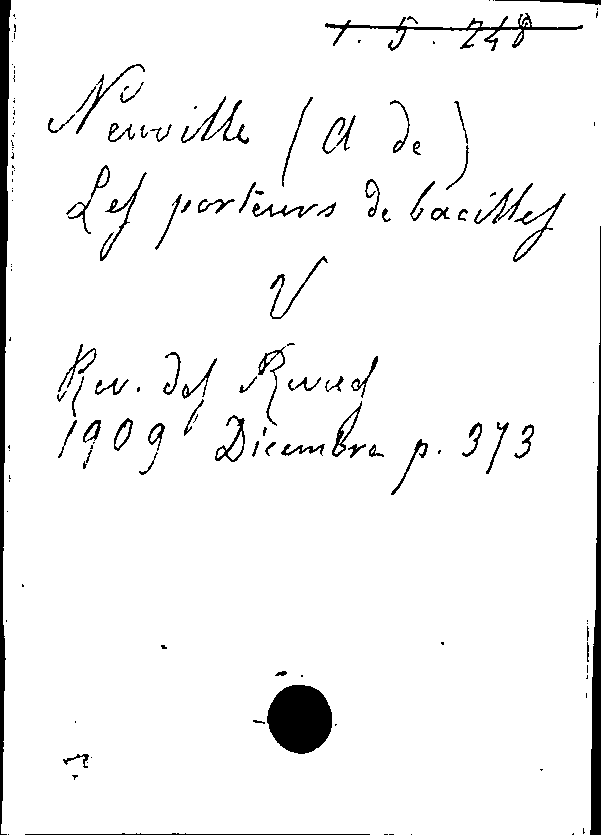 1. 5. 248
Neuville (A de)
Les porteurs de bacilles
V
Rev. des Revues
1909 Dicembre p. 373